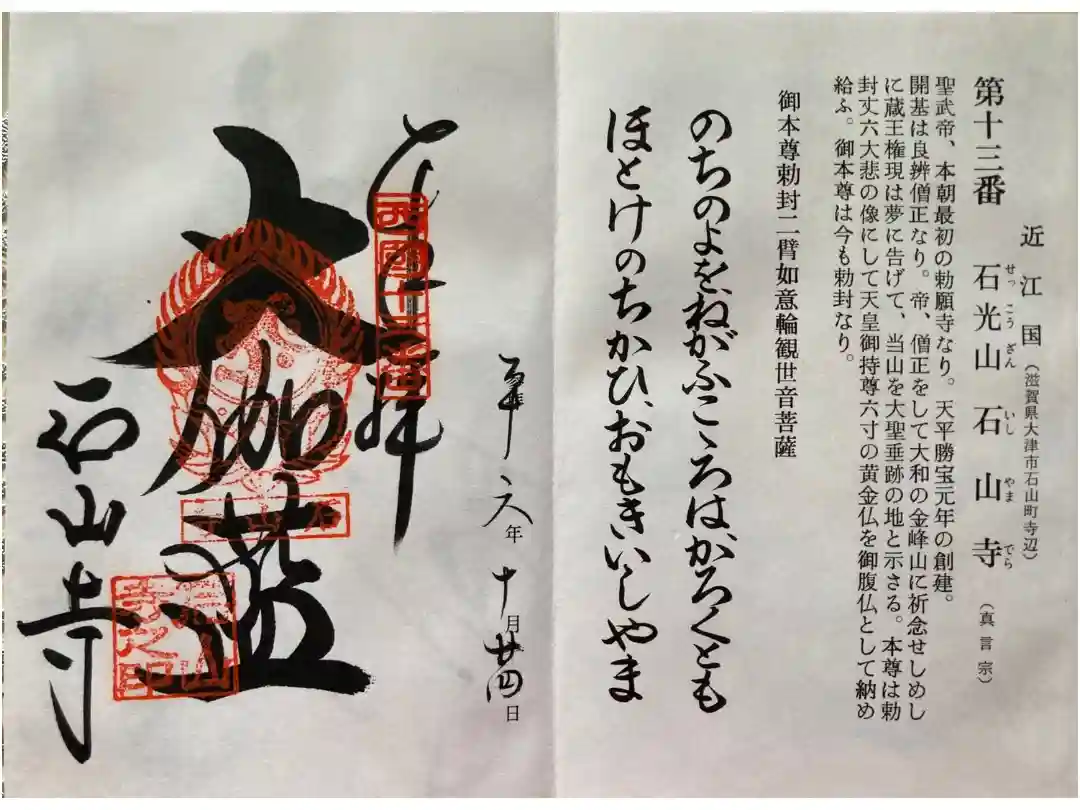 近江国（滋賀県大津市石山町寺辺）
第十三番 石光山 石山寺（真言宗）
せっこうざん いしやまでら
聖武帝、本朝最初の勅願寺なり。天平勝宝元年の創建。
開基は良辨僧正なり。帝、僧正をして大和の金峰山に祈念せしめし
に蔵王権現は夢に告げて、当山を大聖垂跡の地と示さる。本尊は勅
封丈六大悲の像にして天皇御持尊六寸の黄金仏を御腹仏として納め
給ふ。御本尊は今も勅封なり。
御本尊勅封二臂如意輪観世音菩薩
のちのよをねがふこゝろはかろくとも
ほとけのちかひ、おもきいしやま
六年 十月廿四日
拝
西國十三番
大伽藍
石山寺
石山寺